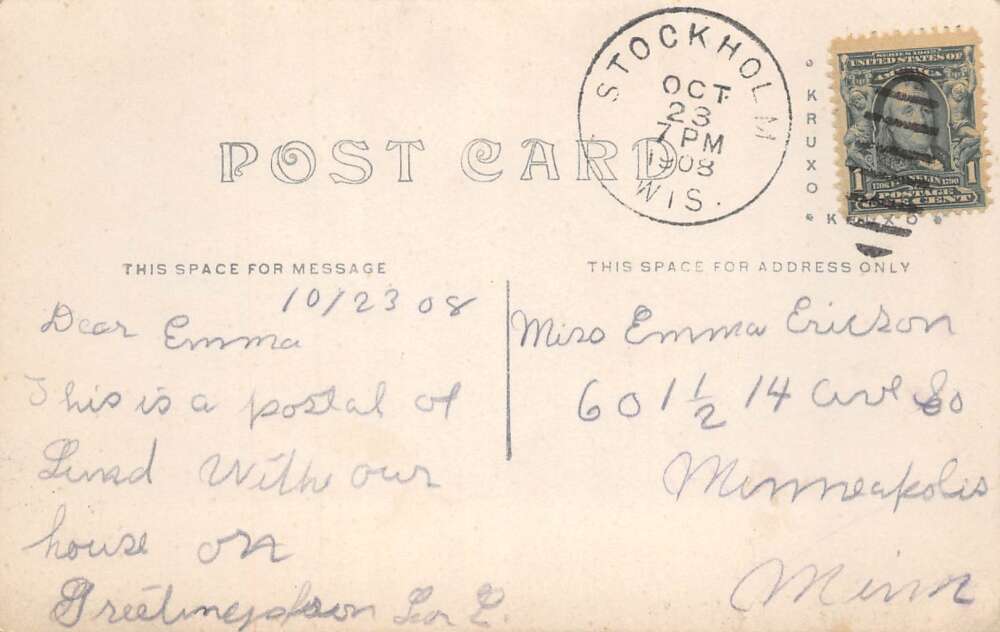 POST CARD
STOCKHOLM
OCT
23
7 PM
1908
WIS.
SERIES 1902
UNITED STATES OF
AMERICA
1 1
1706 FRANKLIN 1790
POSTAGE
ONE CENT
KRUXO
KRUXO
THIS SPACE FOR MESSAGE
THIS SPACE FOR ADDRESS ONLY
10/23 08
Dear Emma
This is a postal of
Lund With our
house on
Miss Emma Ericson
601 1/2 14 Ave So
Minneapolis
Minn